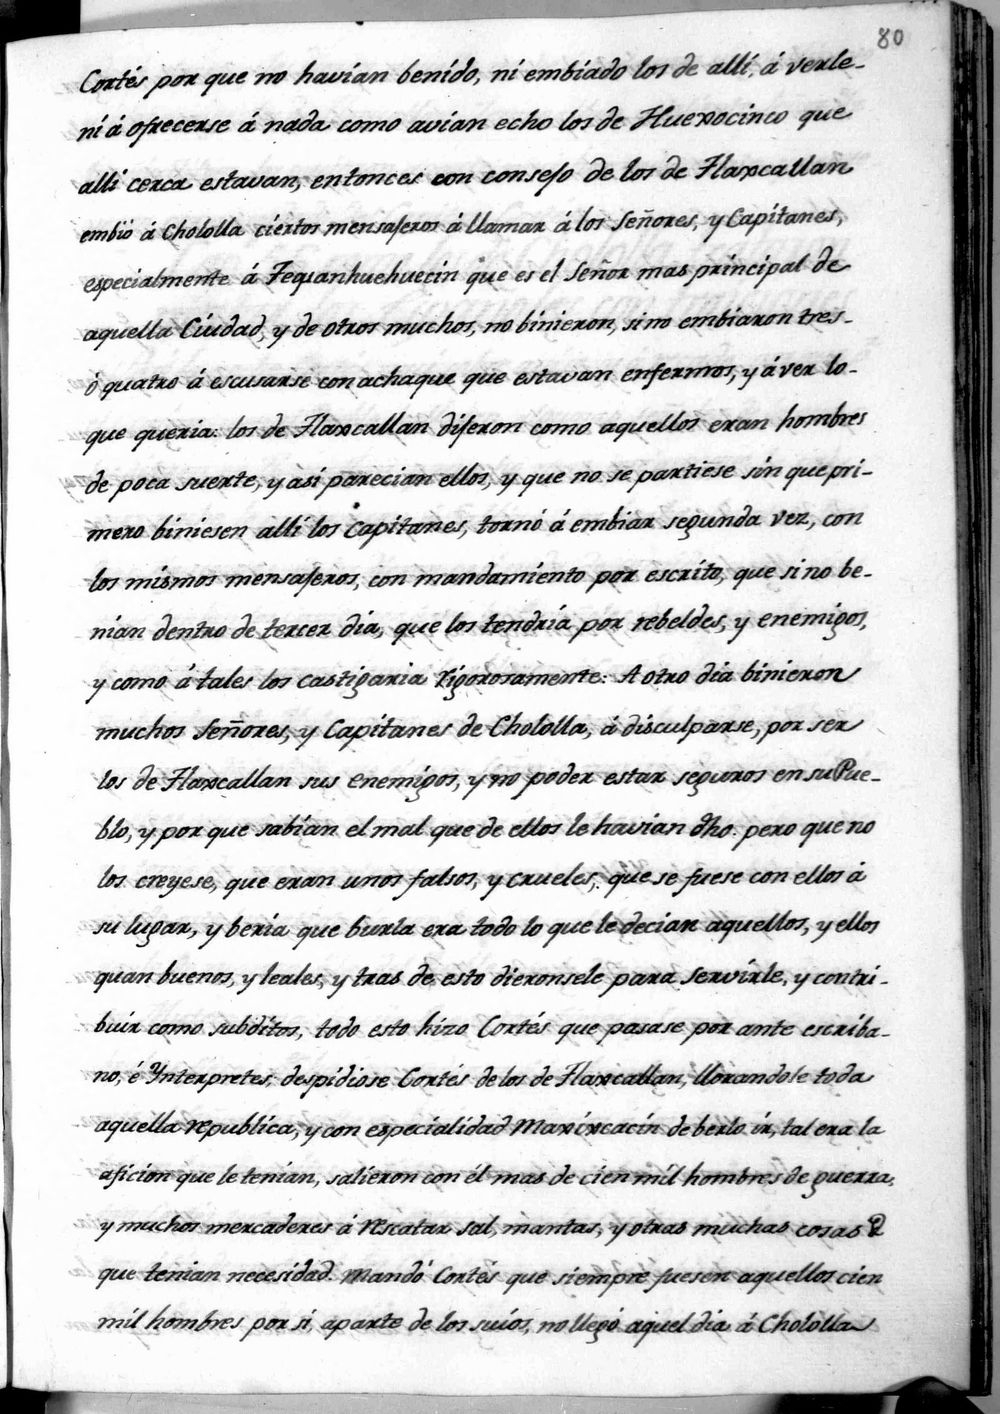 80
Cortés por que no havian benido, ni embiado los de allí, á verle-
ni á ofrecerse á nada como avian echo los de Huexocinco que
allí cerca estavan, entonces con consejo de los de Tlaxcallan
embió á Chololla ciertos mensajeros á llamar á los Señores, y Capitanes,
especialmente á Tequanhuehuecin que es el Señor mas principal de
aquella Ciudad, y de otros muchos, no binieron, sino embiaron tres-
ó quatro á escusarse con achaque que estavan enfermos, y á ver lo-
que queria: los de Tlaxcallan dijeron como aquellos eran hombres
de poca suerte, y asi parecian ellos, y que no se partiese sin que pri-
mero biniesen allí los Capitanes, tornó á embiar segunda vez, con
los mismos mensajeros, con mandamiento por escrito, que si no be-
nian dentro de tercer dia, que los tendría por rebeldes, y enemigos,
y como á tales los castigaria rigorosamente: A otro dia binieron
muchos Señores, y Capitanes de Chololla, á disculparse, por ser
los de Tlaxcallan sus enemigos, y no poder estar seguros en su Pue-
blo, y por que sabían el mal que de ellos le havian dho. pero que no
los creyese, que eran unos falsos, y crueles, que se fuese con ellos á
su lugar, y bería que burla era todo lo que le decian aquellos, y ellos
quan buenos, y leales, y tras de esto dieronsele para servirle, y contri-
buir como subditos, todo esto hizo Cortés que pasase por ante escriba-
no, é Ynterpretes, despidiose Cortés de los de Tlaxcallan, llorandole toda
aquella republica, y con especialidad Maxixcacin de berlo ir, tal era la
aficion que le tenian, salieron con él mas de cien mil hombres de guerra,
y muchos mercaderes á rescatar sal, mantas, y otras muchas cosas
que tenian necesidad. Mandó Cortés que siempre fuesen aquellos cien
mil hombres por si, aparte de los suios, no llegó aquel dia á Chololla